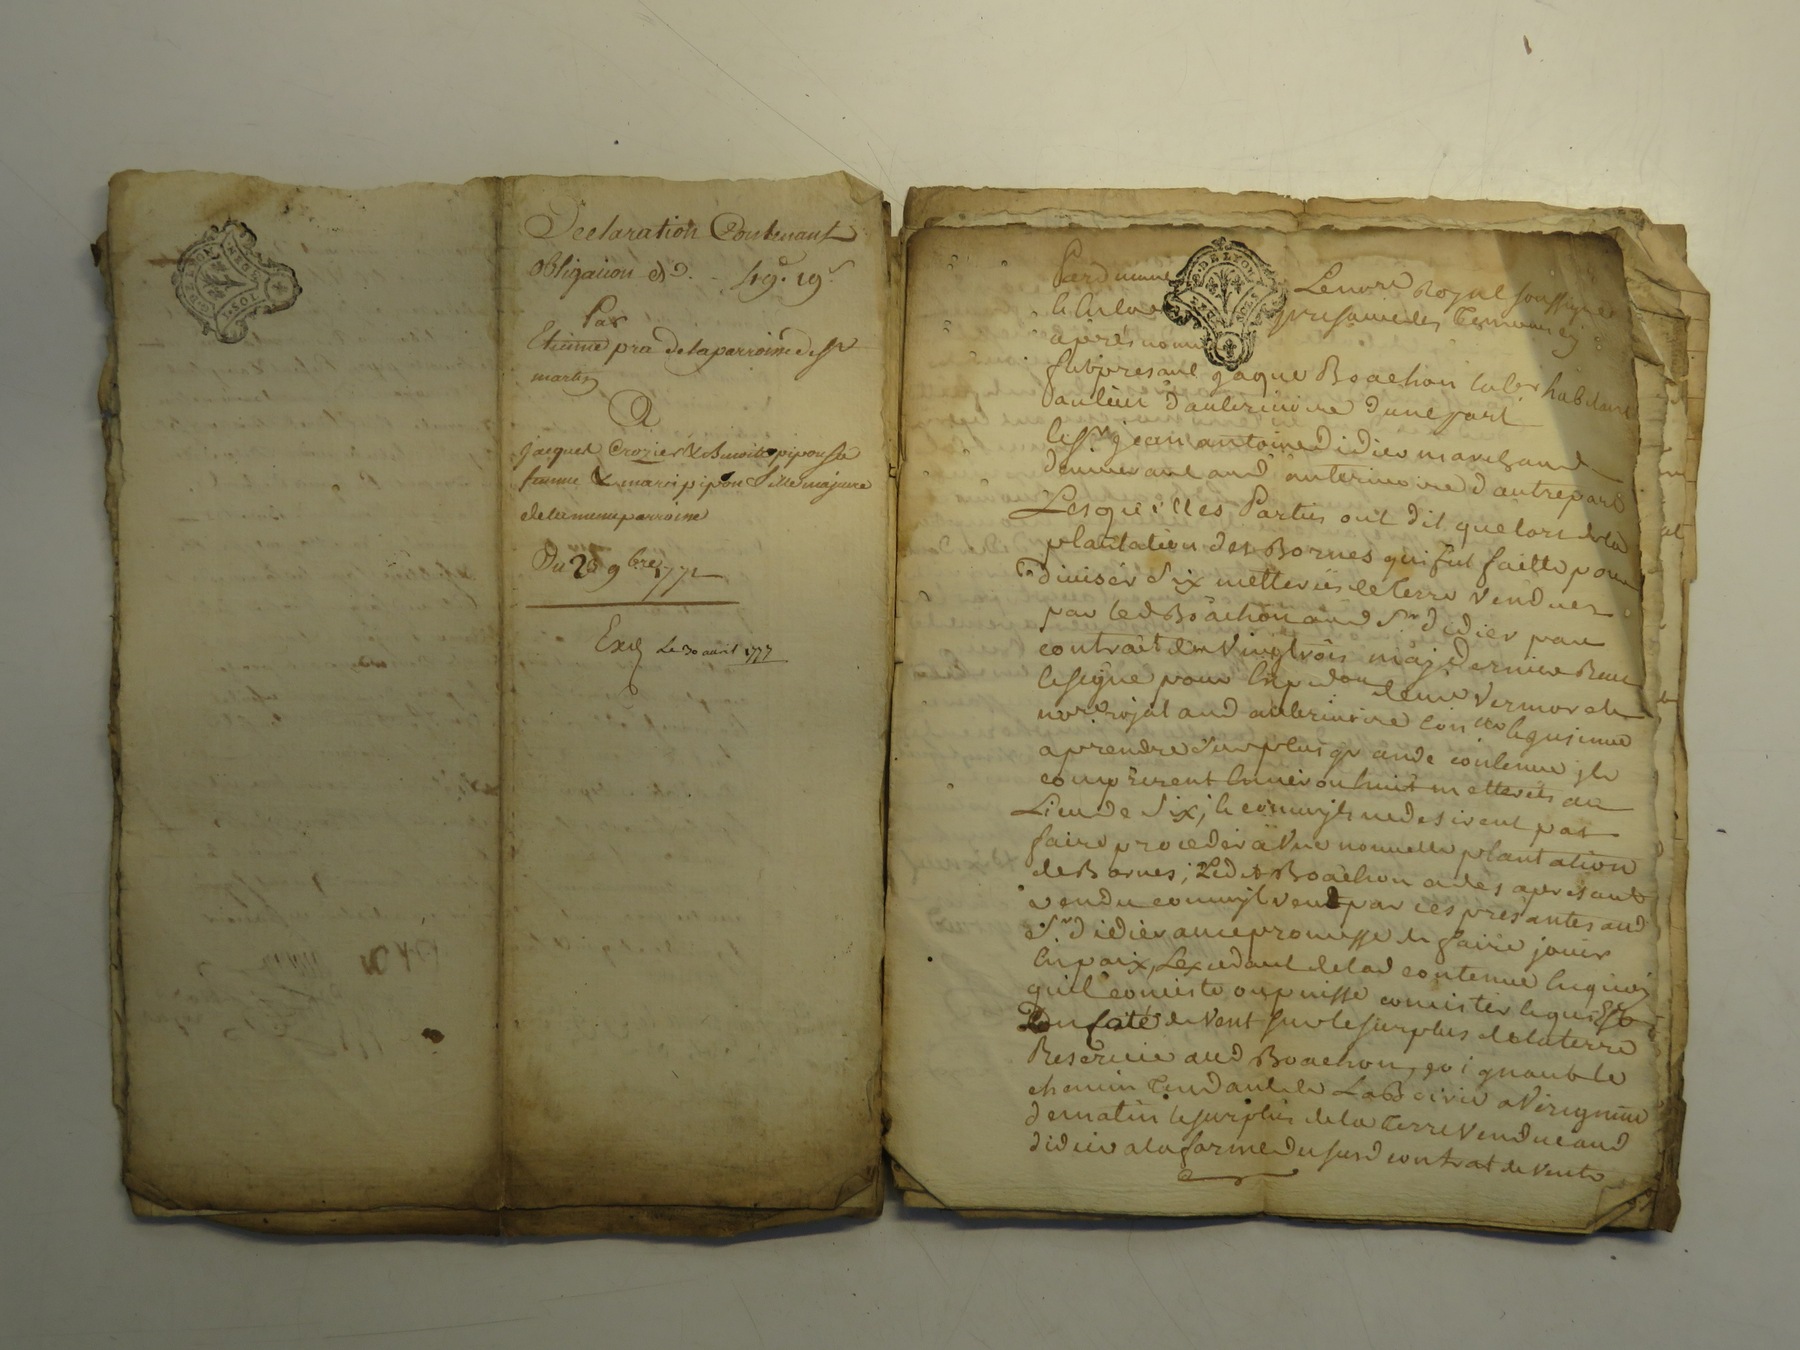 Declaration Contenant
obligaiion de 49# 19s
Par
Etienne pra de la parroisse de St
martin
A
jacques Crozier & Benoite pipon sa
femme & marie pipon fille majeure
de la meme parroisse
Du 28 9bre 1772
Exp Le 30 avril 1777
Pardevant Le notre Royal soussigné
le presance des temoins
après nommé
fut presant jaque Boachon labr habitant
d'une part
le Sr jean antoine didier marchand
demeurant aud d'autre part
Lesquelles Parties ont dit que lors de la
plantation des Bornes qui fut faitte pour
diviser Six metterées de terre Vendues
par led Boachon aud Sr didier par
contrait du Vingtrois may dernier Receu
notre rojal aud
a prendre Sur plus grande contenue ils
comprirent huit metterés au
Lieu de Six, et comm'ils ne desirent pas
faire proceder à Une nouvelle plantation
de Bornes; Ledit Boachon a dès apresant
vendu comm'jl vend par ces présantes aud
Sr didier avec promesse de faire jouir
En paix, Lexcedant de lad contenue En quoy
qu'il consiste ou puisse consister lequel
de Vent sur le surplus de la terre
Reservée aud Boachon, joignant le
chemin Tendant de a
de matin le surplus de la Terre Vendue aud
didier a la forme du susd contrat de Vente